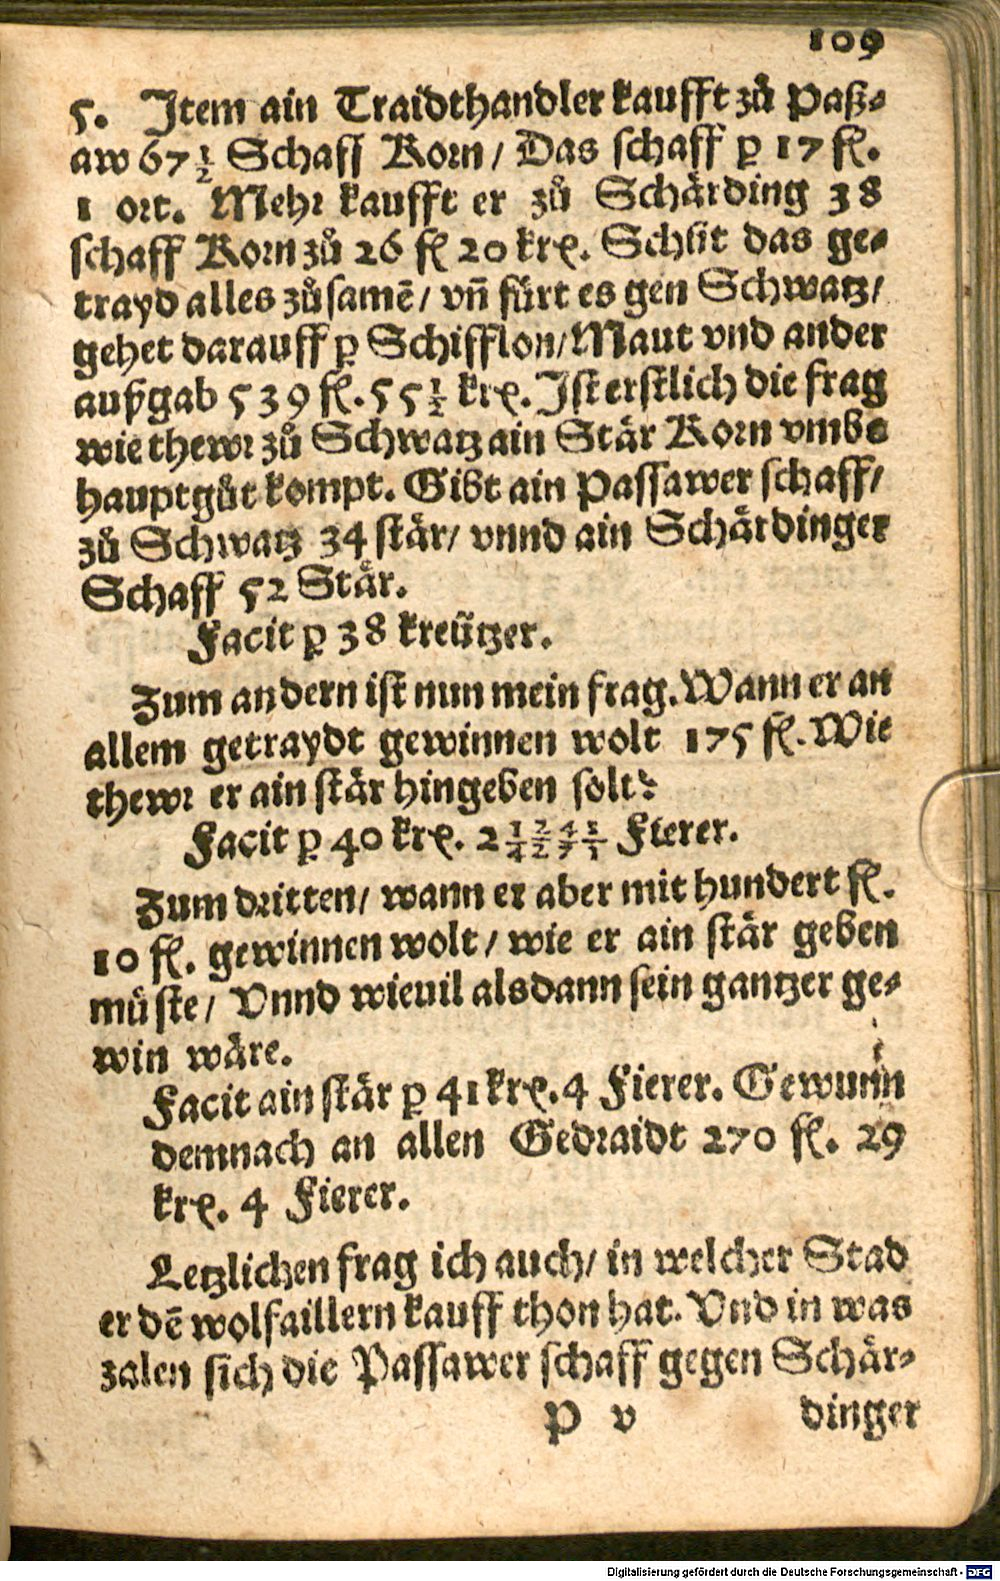 109
5. Item ain Traidthandler kaufft zů Paß⸗
aw 67 1/2 Schaff Korn / Das schaff p̱ 17 fl.
1 ort. Mehr kaufft er zů Schärding 38
schaff Korn zů 26 fl 20 krꝭ. Schüt das ge⸗
trayd alles zůsamē / vn̄ fürt es gen Schwatz /
gehet darauff p̱ Schifflon / Maut vnd ander
außgab 539 fl. 55 1/2 krꝭ. Ist erstlich die frag
wie thewr zů Schwatz ain Stär Korn vmbs
hauptgůt kompt. Gibt ain Passawer schaff /
zů Schwatz 34 stär / vnnd ain Schärdinger
Schaff 52 Stär.
Facit p̱ 38 kreützer.
Zum andern ist nun mein frag. Wann er an
allem getraydt gewinnen wolt 175 fl. Wie
thewr er ain stär hingeben solt?
Facit p̱ 40 krꝭ. 2 Fierer.
Zum dritten / wann er aber mit hundert fl.
10 fl. gewinnen wolt / wie er ain stär geben
müste / Vnnd wieuil alsdann sein gantzer ge⸗
win wäre.
Facit ain stär p̱ 41 krꝭ. 4 Fierer. Gewunn
demnach an allen Gedraidt 270 fl. 29
krꝭ. 4 Fierer.
Letzlichen frag ich auch / in welcher Stad
er dē wolfaillern kauff thon hat. Vnd in was
zalen sich die Passawer schaff gegen Schär⸗
P v dinger
Digitalisierung gefördert durch die Deutsche Forschungsgemeinschaft - DFG